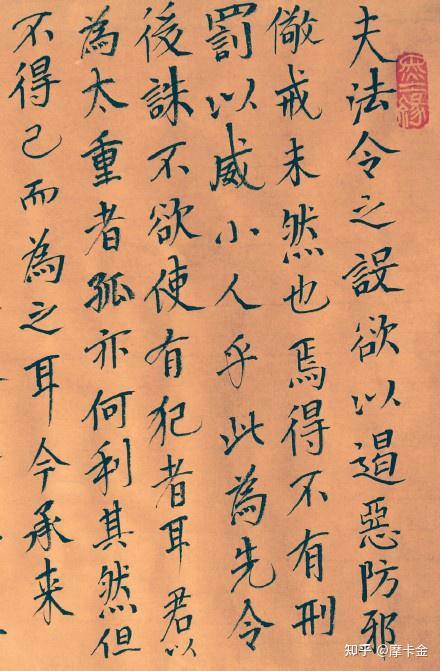 夫法令之設欲以遏惡防邪
儆戒未然也焉得不有刑
罰以威小人乎此為先令
後誅不欲使有犯者耳君以
為太重者孤亦何利其然但
不得已而為之耳今承来
知乎 @摩卡金